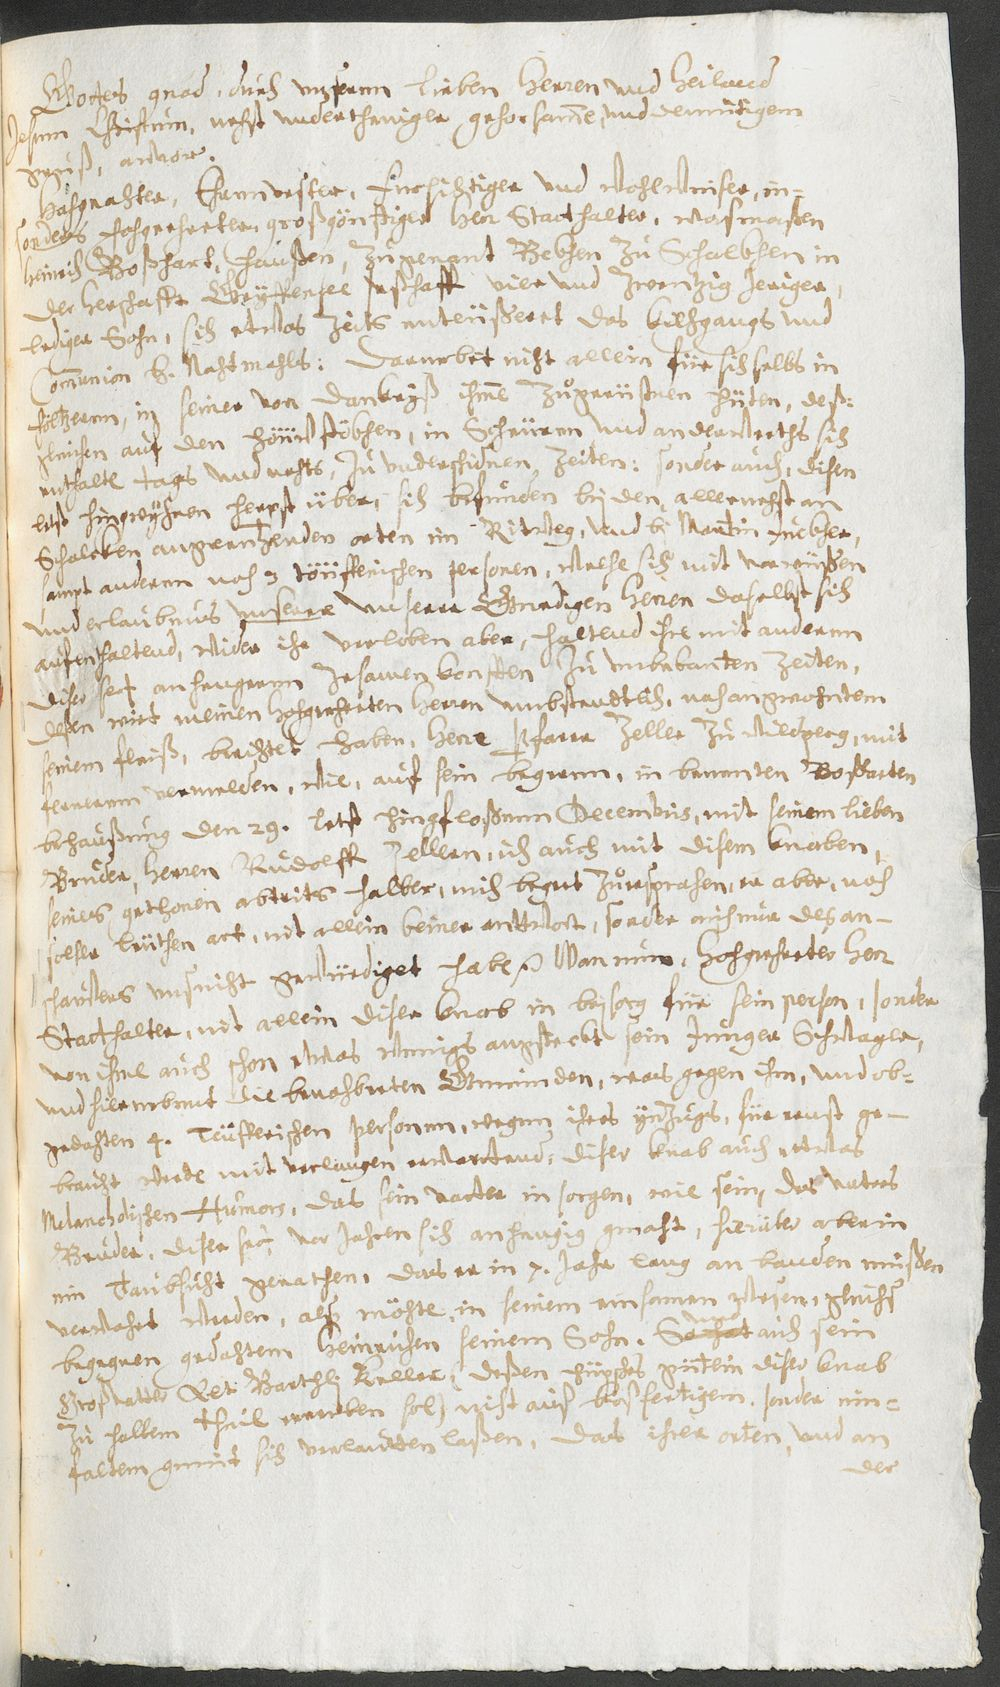 Gottes gnad, durch unseren lieben Herren und Heiland
Jesum Christum, nebst undertheniger gehorsame, und demütigem
gruß, anvor.
Hochgeachter, Ehrenvester, Fürsichtiger und Wohlweiser, in-
sonders hochgeehrter, großgönstiger Herr Statthalter, wasmaßen
Heinrich Boßhart, Haußen, zugenant Beblen zu Schalchen in
der Herschafft Gryffensee seßhafft vier und zwenzig Jeriger,
lediger Sohn, sich etwas Zeits enteüßeret des kilchgangs und
Communion H. Nachtmahls: Darnebet nicht allein für sich selbs in
höltzeren, in seiner von ihme zugerüsteten hüten, deß-
gleichen auf den höüwstöblen, in Scheüren und anderwerths sich
enthalte tags und nachts, zu underschidnen Zeiten: sonder auch, disen
letst hingewichnen herpst über, sich befunden bi den allernechst an
Schalchen angrentzenden orten im Ritweg, und bi Martin
sampt anderen noch 3 töüfferischen personen, welche sich mit vorwüßen
und erlaubnus unserer Unserer Gnedigen Herren daselbst sich
aufenthaltend, wider ihr verloben aber, haltend ihre mit anderen
diser sect anhengeren zusamenkonfften zu unbekanten Zeiten,
deßen wirt meinen hochgeehrten Herren umbstendtlich, nach angewohntem
seinem fleiß, berichtet haben, Herr Pfarer Zeller zu Wildperg, mit
fernerem vermelden, wie, auf sein begeren, in benanten Boßharten
behaußung den 29. letst hingefloßnen Decembris, mit seinem lieben
Bruder, Herren Rudolff Zelleren, ich auch mit disem knaben,
seines gethonen abtrits halber, mich begert zuersprachen, er aber, nach
solcher leüthen art, nit allein keiner antwort, sonder auch nur des an-
schauwens uns nicht gewürdiget habe. Wan nun, Hochgeehrter Herr
Statthalter, nit allein diser knab in besorg für sein person, sonder
von ihme auch schon etwas wenigs angsteckt sein Junger Schwager,
und hiernebent die benachbarten Gmeinden, was gegen ihm, und ob-
gedachten 4. Teüfferischen personen, wegen ihres ynzugs, für ernst ge-
braucht werde mit verlangen erwartend: diser knab auch etwas
Melancholischen Humors, das sein vatter in sorgen, wie sein, des vatters
Bruder, diser sect vor Jahren sich anhengig gmacht, hierüber aber in
ein Taubsucht gerathen, das er in 7. Jahr lang an banden müßen
verwahrt werden, also möchte in seinem einsamen weßen, gleichs
begegnen gedachtem Heinrichen seinem Sohn. So hat auch sein
Großvatter Barthli Keller, deßen hüpsches gütlein diser knab
zu halbem theil erwerben sol, nicht auß boshertigem, sonder ein-
faltem gmüt sich verlautten laßen, das ihrer orten, und an
der